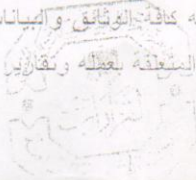 كافة الوثائق والبيانات
المتعلقة بعمله وتقارير